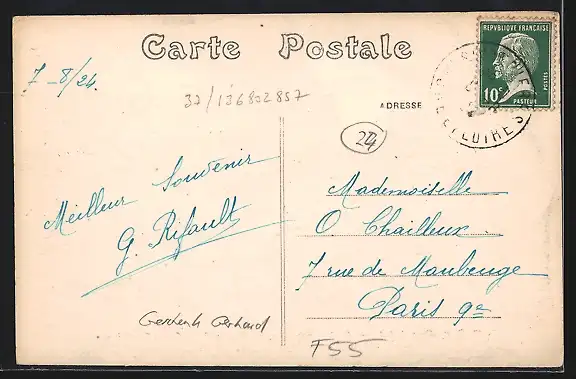 Carte Postale
7-8/24.
37/136802857
ADRESSE
24
REPUBLIQUE FRANÇAISE
10c
PASTEUR
POSTES
Meilleur Souvenir
G. Rifault
Mademoiselle
O Chailleux
7 rue de Maubeuge
Paris 9e
Gerhard
F55